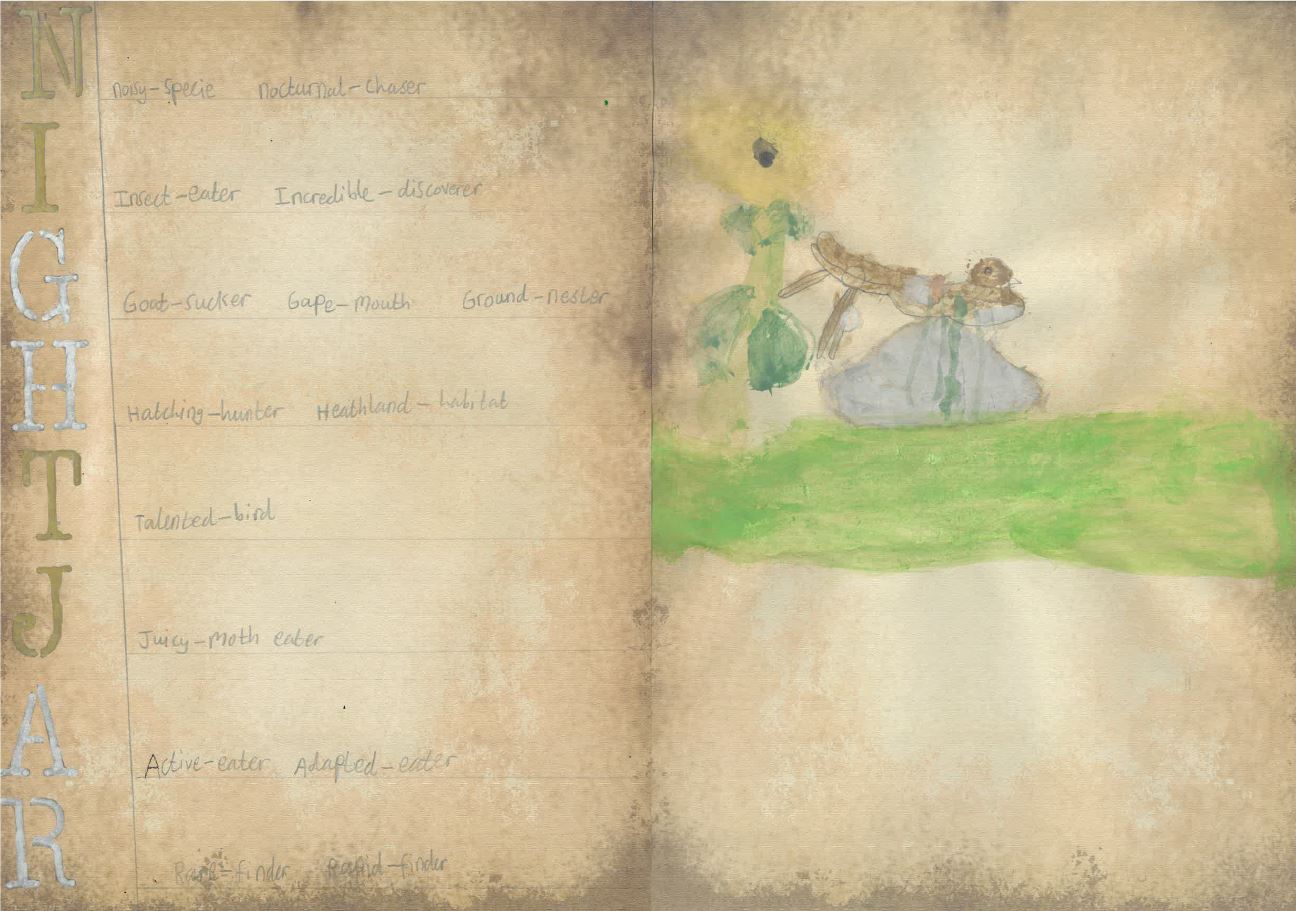 N noisy-specie nocturnal-chaser
I Insect-eater Incredible-discoverer
G Goat-sucker Gape-mouth Ground-nester
H Hatching-hunter Heathland-habitat
T Talented-bird
J Juicy-moth eater
A Active-eater Adapted-eater
R Rare-finder Rapid-finder